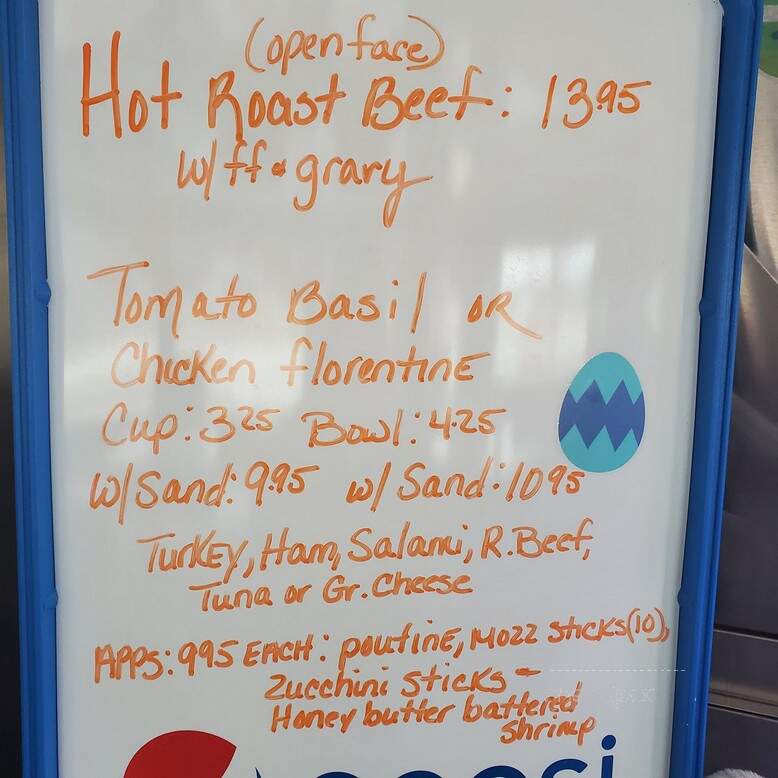 (open face)
Hot Roast Beef: 13.95
w/ ff & gravy
Tomato Basil or
Chicken florentine
Cup: 325 Bowl: 4.25
w/Sand: 9.95 w/ Sand: 10.95
Turkey, Ham, Salami, R. Beef,
Tuna or Gr. Cheese
APPS: 995 EACH: poutine, Mozz sticks (10),
Zucchini sticks -
Honey butter battered
shrimp
pepsi